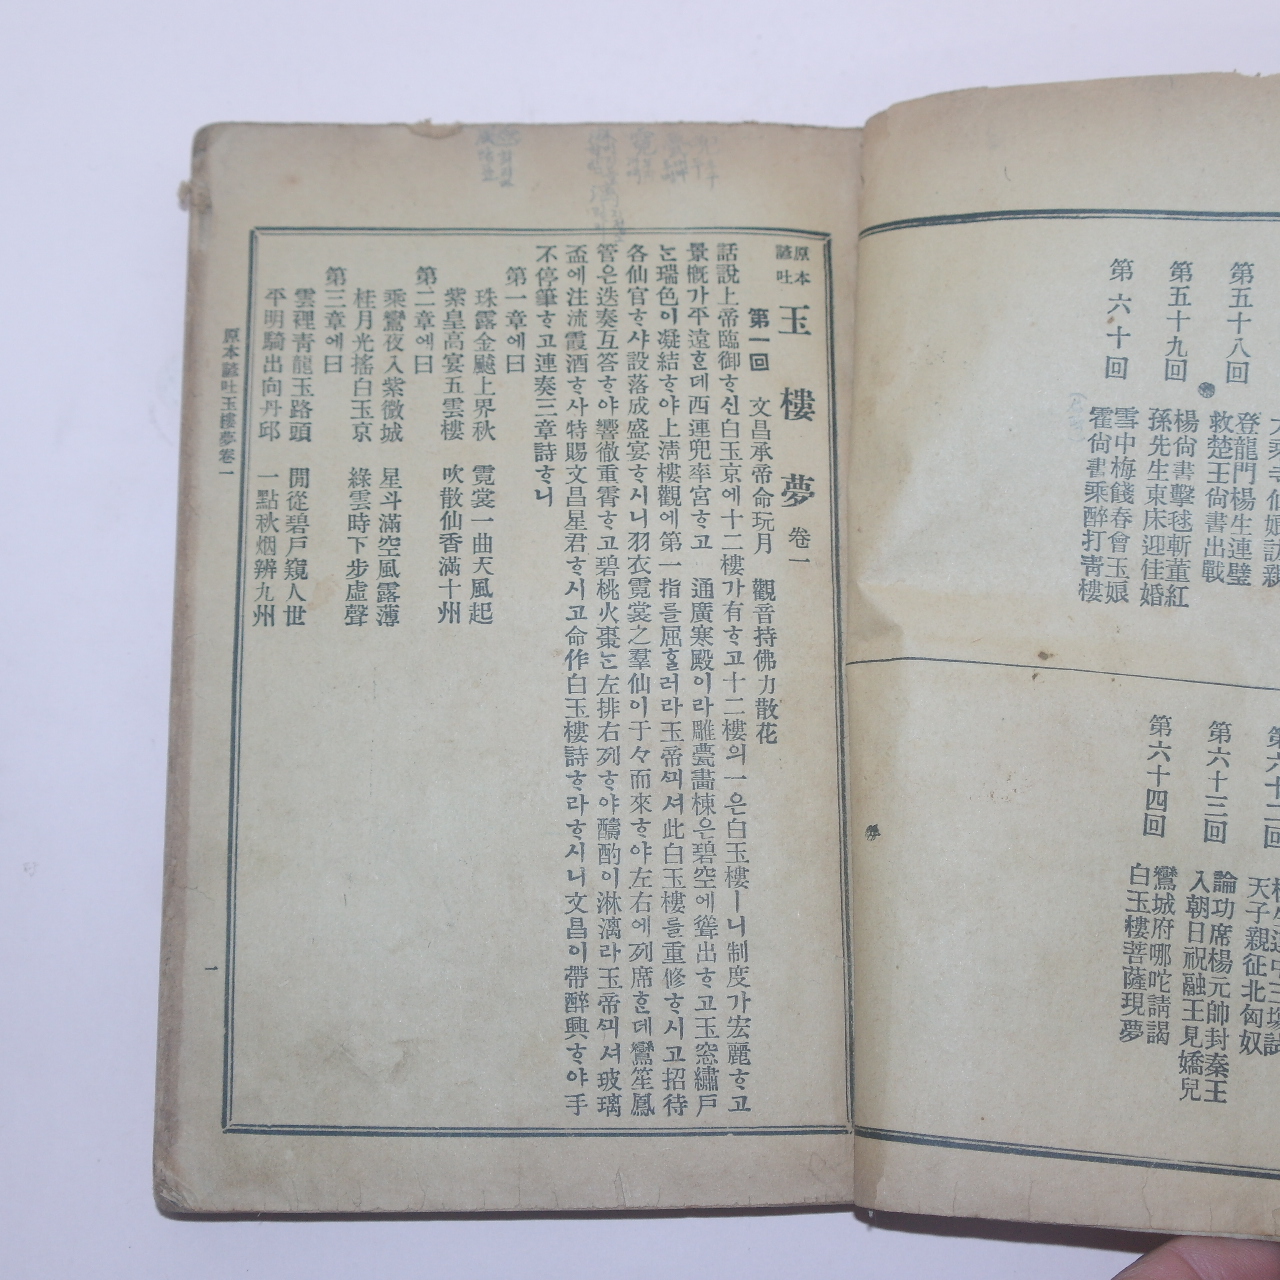 第五十八回 登龍門楊生連璧
救楚王尙書出戰
第五十九回 楊尙書擊毬斬董紅
孫先生東床迎佳婚
第六十回 雪中梅餞春會玉娘
霍尙書乘醉打靑樓
第六十三回 論功席楊元帥封秦王
入朝日祝融王見嬌兒
第六十四回 鸞城府哪咜請謁
白玉樓菩薩現夢
天子親征北匈奴
原本諺吐 玉樓夢 卷一
第一回 文昌承帝命玩月 觀音持佛力散花
話說上帝臨御ᄒᆞ신白玉京에十二樓가有ᄒᆞ고十二樓의一은白玉樓ㅣ니制度가宏麗ᄒᆞ고
景槪가平遠ᄒᆞᆫ데西連兜率宮ᄒᆞ고 通廣寒殿이라雕甍畵棟은碧空에聳出ᄒᆞ고玉窓繡戶
ᄂᆞᆫ瑞色이凝結ᄒᆞ야上淸樓觀에第一指를屈ᄒᆞᆯ러라玉帝ᄭᅴ셔此白玉樓를重修ᄒᆞ시고招待
各仙官ᄒᆞ샤設落成盛宴ᄒᆞ시니羽衣霓裳之羣仙이于々而來ᄒᆞ야左右에列席ᄒᆞᆫ데鸞笙鳳
管은迭奏互答ᄒᆞ야響徹重霄ᄒᆞ고碧桃火棗ᄂᆞᆫ左排右列ᄒᆞ야醻酌이淋漓라玉帝ᄭᅴ셔玻璃
盃에注流霞酒ᄒᆞ사特賜文昌星君ᄒᆞ시고命作白玉樓詩ᄒᆞ라ᄒᆞ시니文昌이帶醉興ᄒᆞ야手
不停筆ᄒᆞ고連奏三章詩ᄒᆞ니
第一章에曰
珠露金飈上界秋 霓裳一曲天風起
紫皇高宴五雲樓 吹散仙香滿十州
第二章에曰
乘鸞夜入紫微城 星斗滿空風露薄
桂月光搖白玉京 綠雲時下步虛聲
第三章에曰
雲裡靑龍玉路頭 閒從碧戶窺人世
平明騎出向丹邱 一點秋烟辨九州
原本諺吐玉樓夢卷一
一